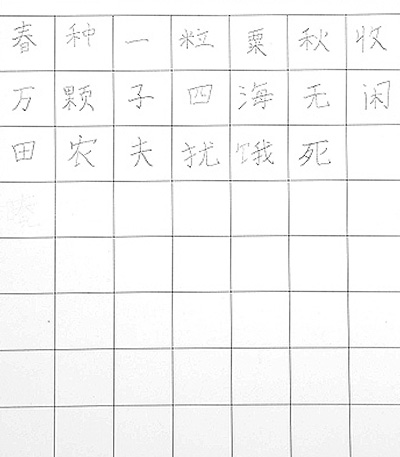 春种一粒粟秋收
万颗子四海无闲
田农夫扰饿死